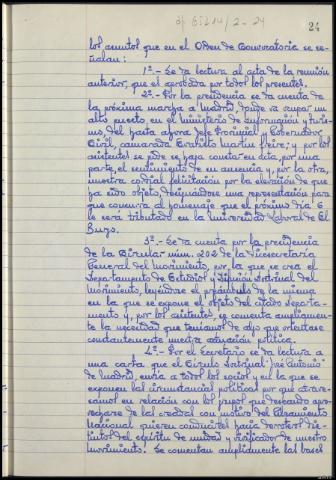 24
los asuntos que en el Orden de Convocatoria se se-
ñalan:
1º.- Se da lectura al acta de la reunión
anterior, que es aprobada por todos los presentes.
2º.- Por la presidencia se da cuenta de
la próxima marcha a Madrid, donde va ocupar un
alto puesto, en el Ministerio de Información y Turis-
mo, del hasta ahora Jefe Provincial y Gobernador
Civil, camarada Evaristo Martín Freire; y por los
asistentes se pide se haga constar en acta, por una
parte, el sentimiento de su ausencia y, por la otra,
nuestra cordial felicitación por la elevación de que
ha sido objeto, designándose una representación para
que concurra al homenaje que el próximo día 6
le será tributado en la Universidad Laboral de El
Burgo.
3º.- Se da cuenta por la presidencia
de la Circular núm. 203 de la Vicesecretaría
General del Movimiento, por la que se crea el
Departamento de Estudios y Difusión Doctrinal del
Movimiento, leyéndose el preámbulo de la misma
en la que se expone el objeto del citado Departa-
mento y, por los asistentes, se comenta ampliamen-
te la necesidad que teníamos de algo que orientase
constantemente nuestra actuación política.
4º.- Por el Secretario se da lectura a
una carta que el Círculo Doctrinal José Antonio
de Madrid, envía a todos los socios y en la que se
exponen las circunstancias políticas por que atrave-
samos en relación con los grupos que deseando apro-
vecharse de las creadas con motivo del Alzamiento
Nacional quieren conducirlas hacia derroteros dis-
tintos del espíritu de unidad y unificador de nuestro
Movimiento. Se comentan ampliamente las bases